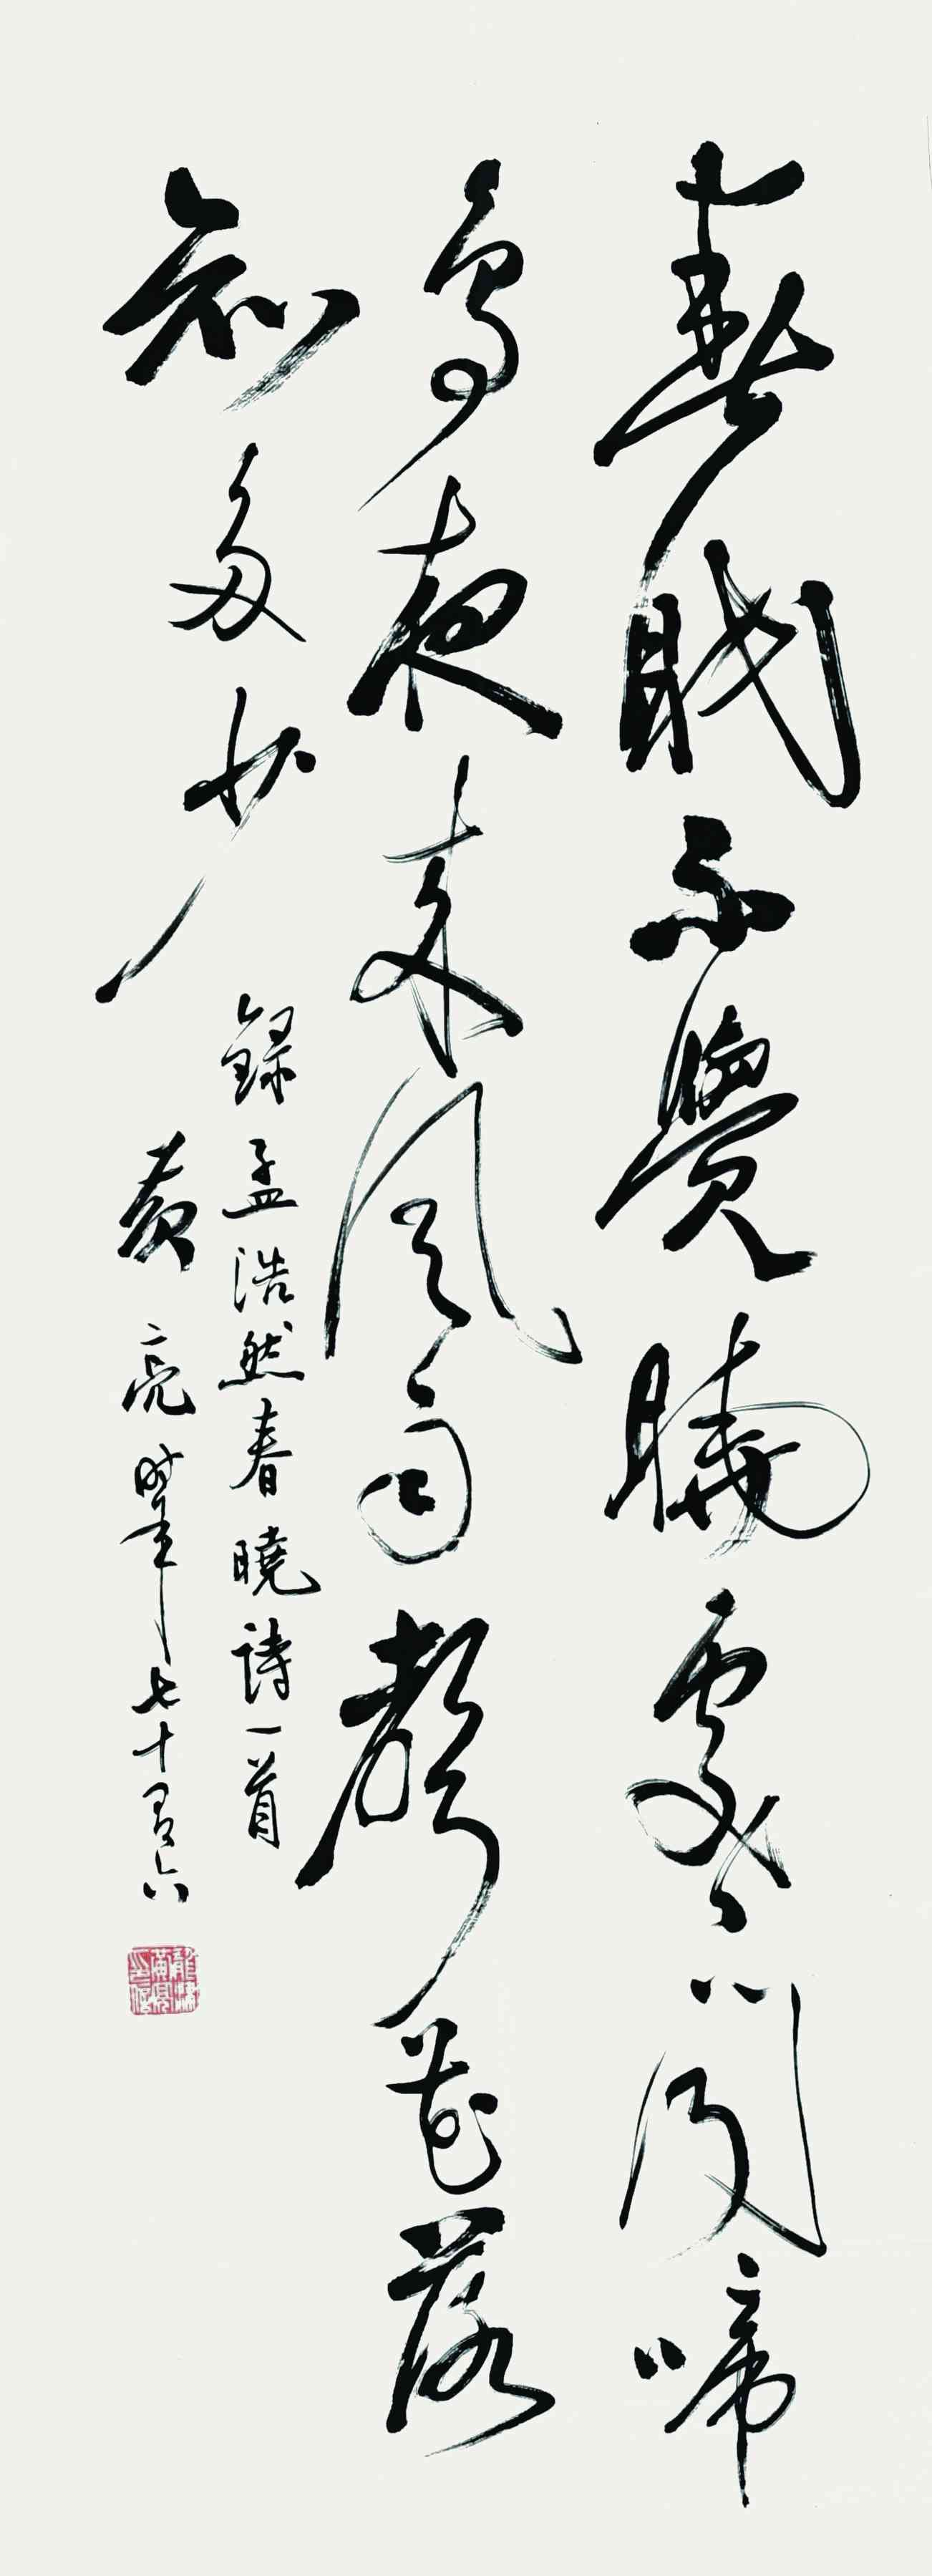 春眠不覺曉處〻聞啼
鳥夜来風雨聲花落
知多少
録孟浩然春曉詩一首
黄亮時年七十有六